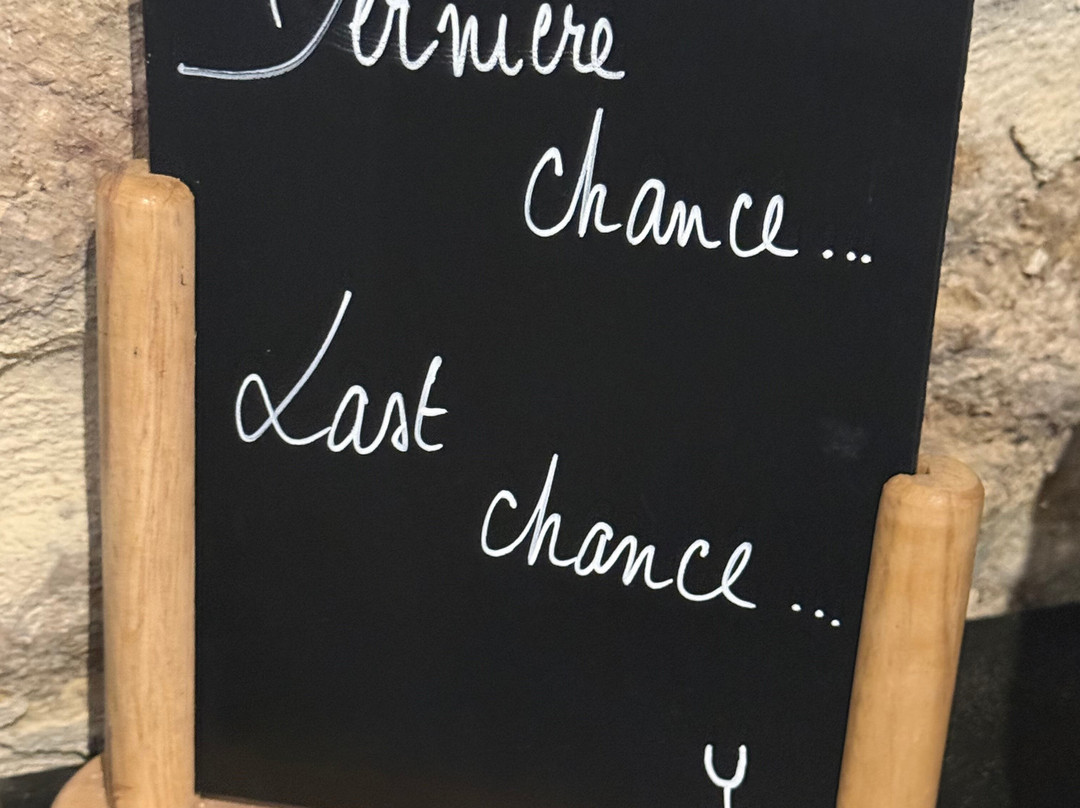 Dernière
chance...
Last
chance...